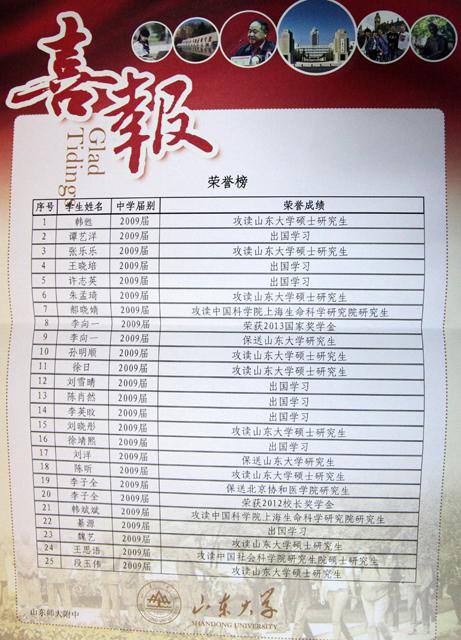 喜報
Glad Tidings
荣誉榜
序号 学生姓名 中学届别 荣誉成绩
1 韩甦 2009届 攻读山东大学硕士研究生
2 谭艺洋 2009届 出国学习
3 张乐乐 2009届 攻读山东大学硕士研究生
4 王晓培 2009届 出国学习
5 许志英 2009届 出国学习
6 朱孟琦 2009届 攻读山东大学硕士研究生
7 郝晓嫱 2009届 攻读中国科学院上海生命科学研究院研究生
8 李向一 2009届 荣获2013国家奖学金
9 李向一 2009届 保送山东大学研究生
10 孙明顺 2009届 攻读山东大学硕士研究生
11 徐日 2009届 攻读山东大学硕士研究生
12 刘雪晴 2009届 出国学习
13 陈肖然 2009届 出国学习
14 李英 2009届 出国学习
15 刘晓彤 2009届 攻读山东大学硕士研究生
16 徐靖熙 2009届 出国学习
17 刘洋 2009届 保送山东大学研究生
18 陈昕 2009届 攻读山东大学硕士研究生
19 李子全 2009届 保送北京协和医学院研究生
20 李子全 2009届 荣获2012校长奖学金
21 韩斌斌 2009届 攻读中国科学院上海生命科学研究院研究生
22 綦源 2009届 出国学习
23 魏艺 2009届 攻读山东大学硕士研究生
24 王思语 2009届 攻读中国社会科学院研究生院硕士研究生
25 段玉伟 2009届 攻读山东大学硕士研究生
山东师大附中
山东大学
SHANDONG UNIVERSITY